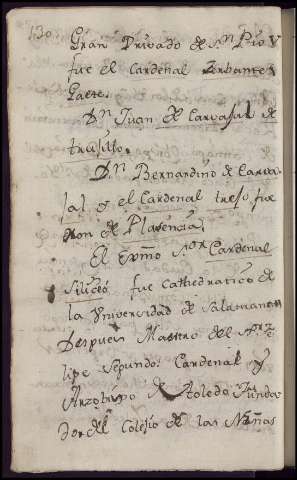 130
Gran Privado de Sn Pio V
fue el Cardenal Zerbantes
Gaete.
Dn Juan de Carvajal de
trujillo.
Dn Bernardino de Carva
jal q el Cardenal treso fue
ron de Plasencia.
El Exmo Sor Cardenal
Siliceo fue Cathedratico de
la Universidad de Salamanca
Despues Maestro del Sr
lipe Segundo. Cardenal y
Arzobispo de Toledo Funda
dor del Colesio de las Niñas